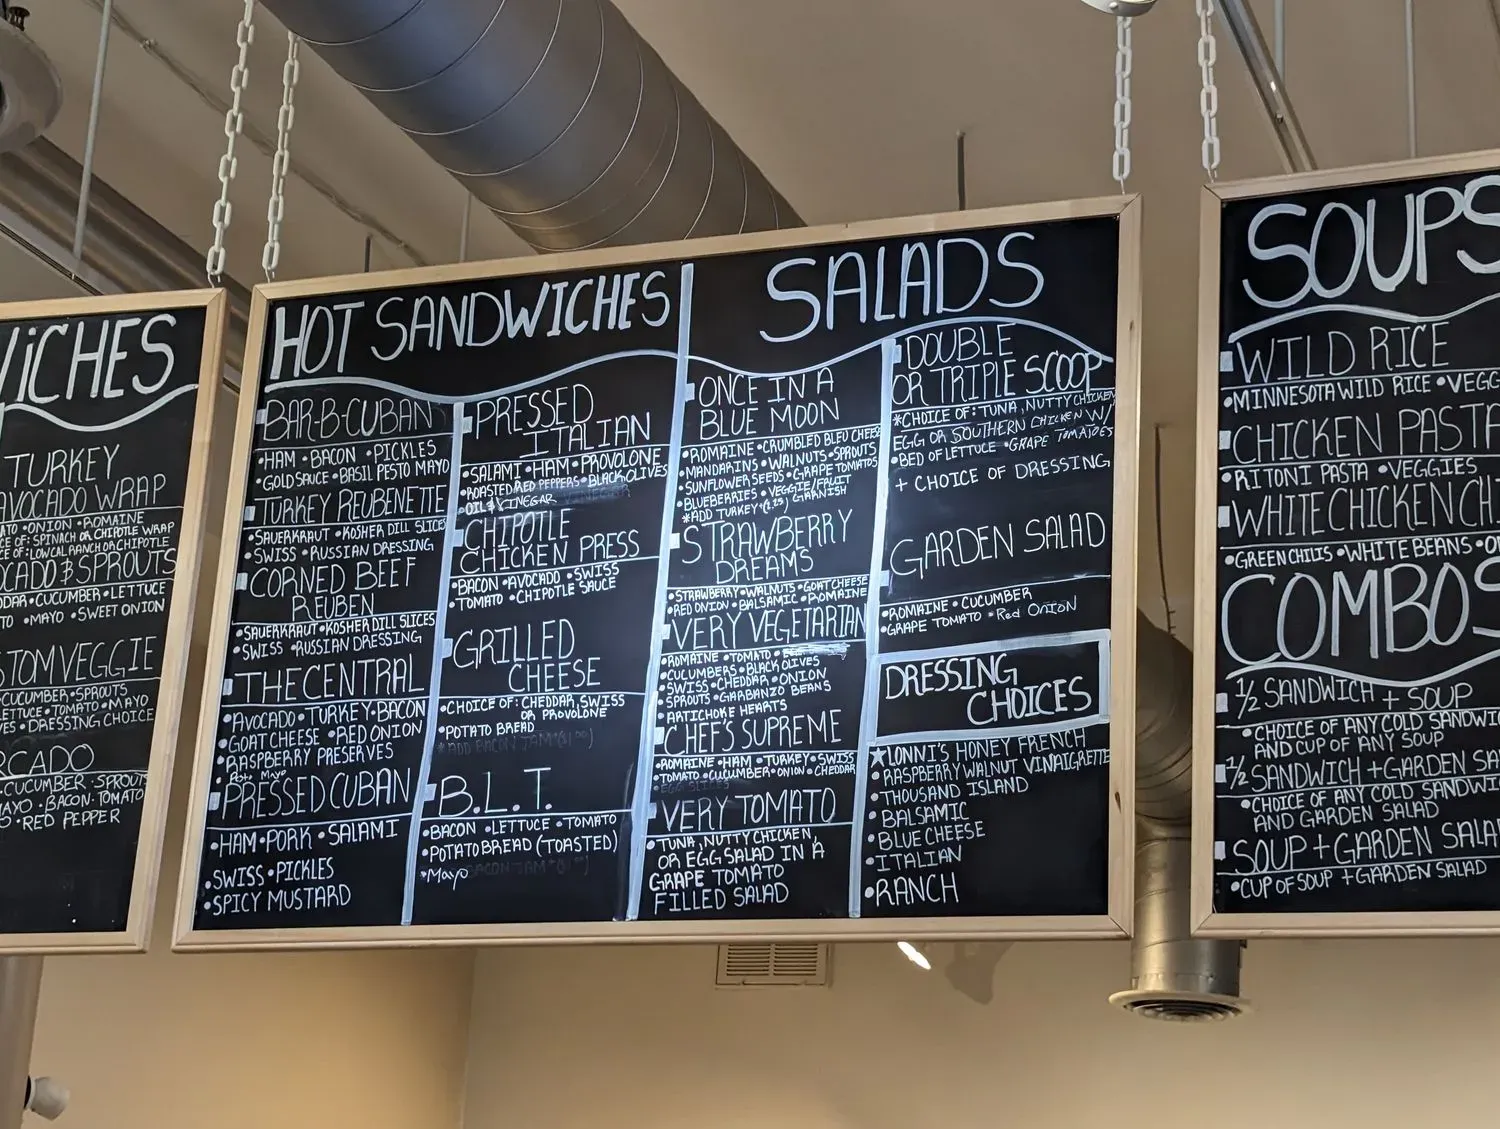 WICHES
TURKEY
AVOCADO WRAP
ATO •ONION •ROMAINE
CE OF: SPINACH OR CHIPOTLE WRAP
CE OF: LOWCAL RANCH OR CHIPOTLE
OCADO & SPROUTS
DDAR •CUCUMBER •LETTUCE
TO •MAYO •SWEET ONION
STOM VEGGIE
CUCUMBER •SPROUTS
LETTUCE •TOMATO •MAYO
VES •DRESSING CHOICE
RCADO
•CUCUMBER •SPROUTS
AYO •BACON •TOMATO
S •RED PEPPER
HOT SANDWICHES
BAR-B-CUBAN
•HAM •BACON •PICKLES
•GOLD SAUCE •BASIL PESTO MAYO
TURKEY REUBENETTE
•SAUERKRAUT •KOSHER DILL SLICES
•SWISS •RUSSIAN DRESSING
CORNED BEEF
REUBEN
•SAUERKRAUT •KOSHER DILL SLICES
•SWISS •RUSSIAN DRESSING
THE CENTRAL
•AVOCADO •TURKEY •BACON
•GOAT CHEESE •RED ONION
•RASPBERRY PRESERVES
Mayo
PRESSED CUBAN
•HAM •PORK •SALAMI
•SWISS •PICKLES
•SPICY MUSTARD
PRESSED
ITALIAN
•SALAMI •HAM •PROVOLONE
•ROASTED RED PEPPERS •BLACK OLIVES
•OIL & VINEGAR
CHIPOTLE
CHICKEN PRESS
•BACON •AVOCADO •SWISS
•TOMATO •CHIPOTLE SAUCE
GRILLED
CHEESE
•CHOICE OF: CHEDDAR, SWISS
OR PROVOLONE
•POTATO BREAD
*ADD BACON JAM*($1.00)
B.L.T.
•BACON •LETTUCE •TOMATO
•POTATO BREAD (TOASTED)
*Mayo BACON JAM*($1.00)
SALADS
ONCE IN A
BLUE MOON
•ROMAINE •CRUMBLED BLEU CHEESE
•MANDARINS •WALNUTS •SPROUTS
•SUNFLOWER SEEDS •GRAPE TOMATOS
•BLUEBERRIES •VEGGIE/FRUIT
*ADD TURKEY GARNISH
STRAWBERRY
DREAMS
•STRAWBERRY •WALNUTS •GOAT CHEESE
•RED ONION •BALSAMIC •ROMAINE
VERY VEGETARIAN
•ROMAINE •TOMATO
•CUCUMBERS •BLACK OLIVES
•SWISS •CHEDDAR •ONION
•SPROUTS •GARBANZO BEANS
•ARTICHOKE HEARTS
CHEFS SUPREME
•ROMAINE •HAM •TURKEY •SWISS
•TOMATO •CUCUMBER •ONION •CHEDDAR
•EGG SLICES
VERY TOMATO
•TUNA, NUTTY CHICKEN,
OR EGG SALAD IN A
GRAPE TOMATO
FILLED SALAD
DOUBLE
OR TRIPLE SCOOP
*CHOICE OF: TUNA, NUTTY CHICKEN
EGG OR SOUTHERN CHICKEN W/
•BED OF LETTUCE •GRAPE TOMATOES
+ CHOICE OF DRESSING
GARDEN SALAD
•ROMAINE •CUCUMBER
•GRAPE TOMATO •Red Onion
DRESSING
CHOICES
★LONNI'S HONEY FRENCH
•RASPBERRY WALNUT VINAIGRETTE
•THOUSAND ISLAND
•BALSAMIC
•BLUE CHEESE
•ITALIAN
•RANCH
SOUPS
WILD RICE
•MINNESOTA WILD RICE •VEGG
CHICKEN PASTA
•RITTONI PASTA •VEGGIES
WHITE CHICKEN CHI
•GREEN CHILIS •WHITE BEANS •O
COMBOS
1/2 SANDWICH + SOUP
•CHOICE OF ANY COLD SANDWIC
AND CUP OF ANY SOUP
1/2 SANDWICH + GARDEN SA
•CHOICE OF ANY COLD SANDWI
AND GARDEN SALAD
SOUP + GARDEN SALA
•CUP OF SOUP + GARDEN SALAD